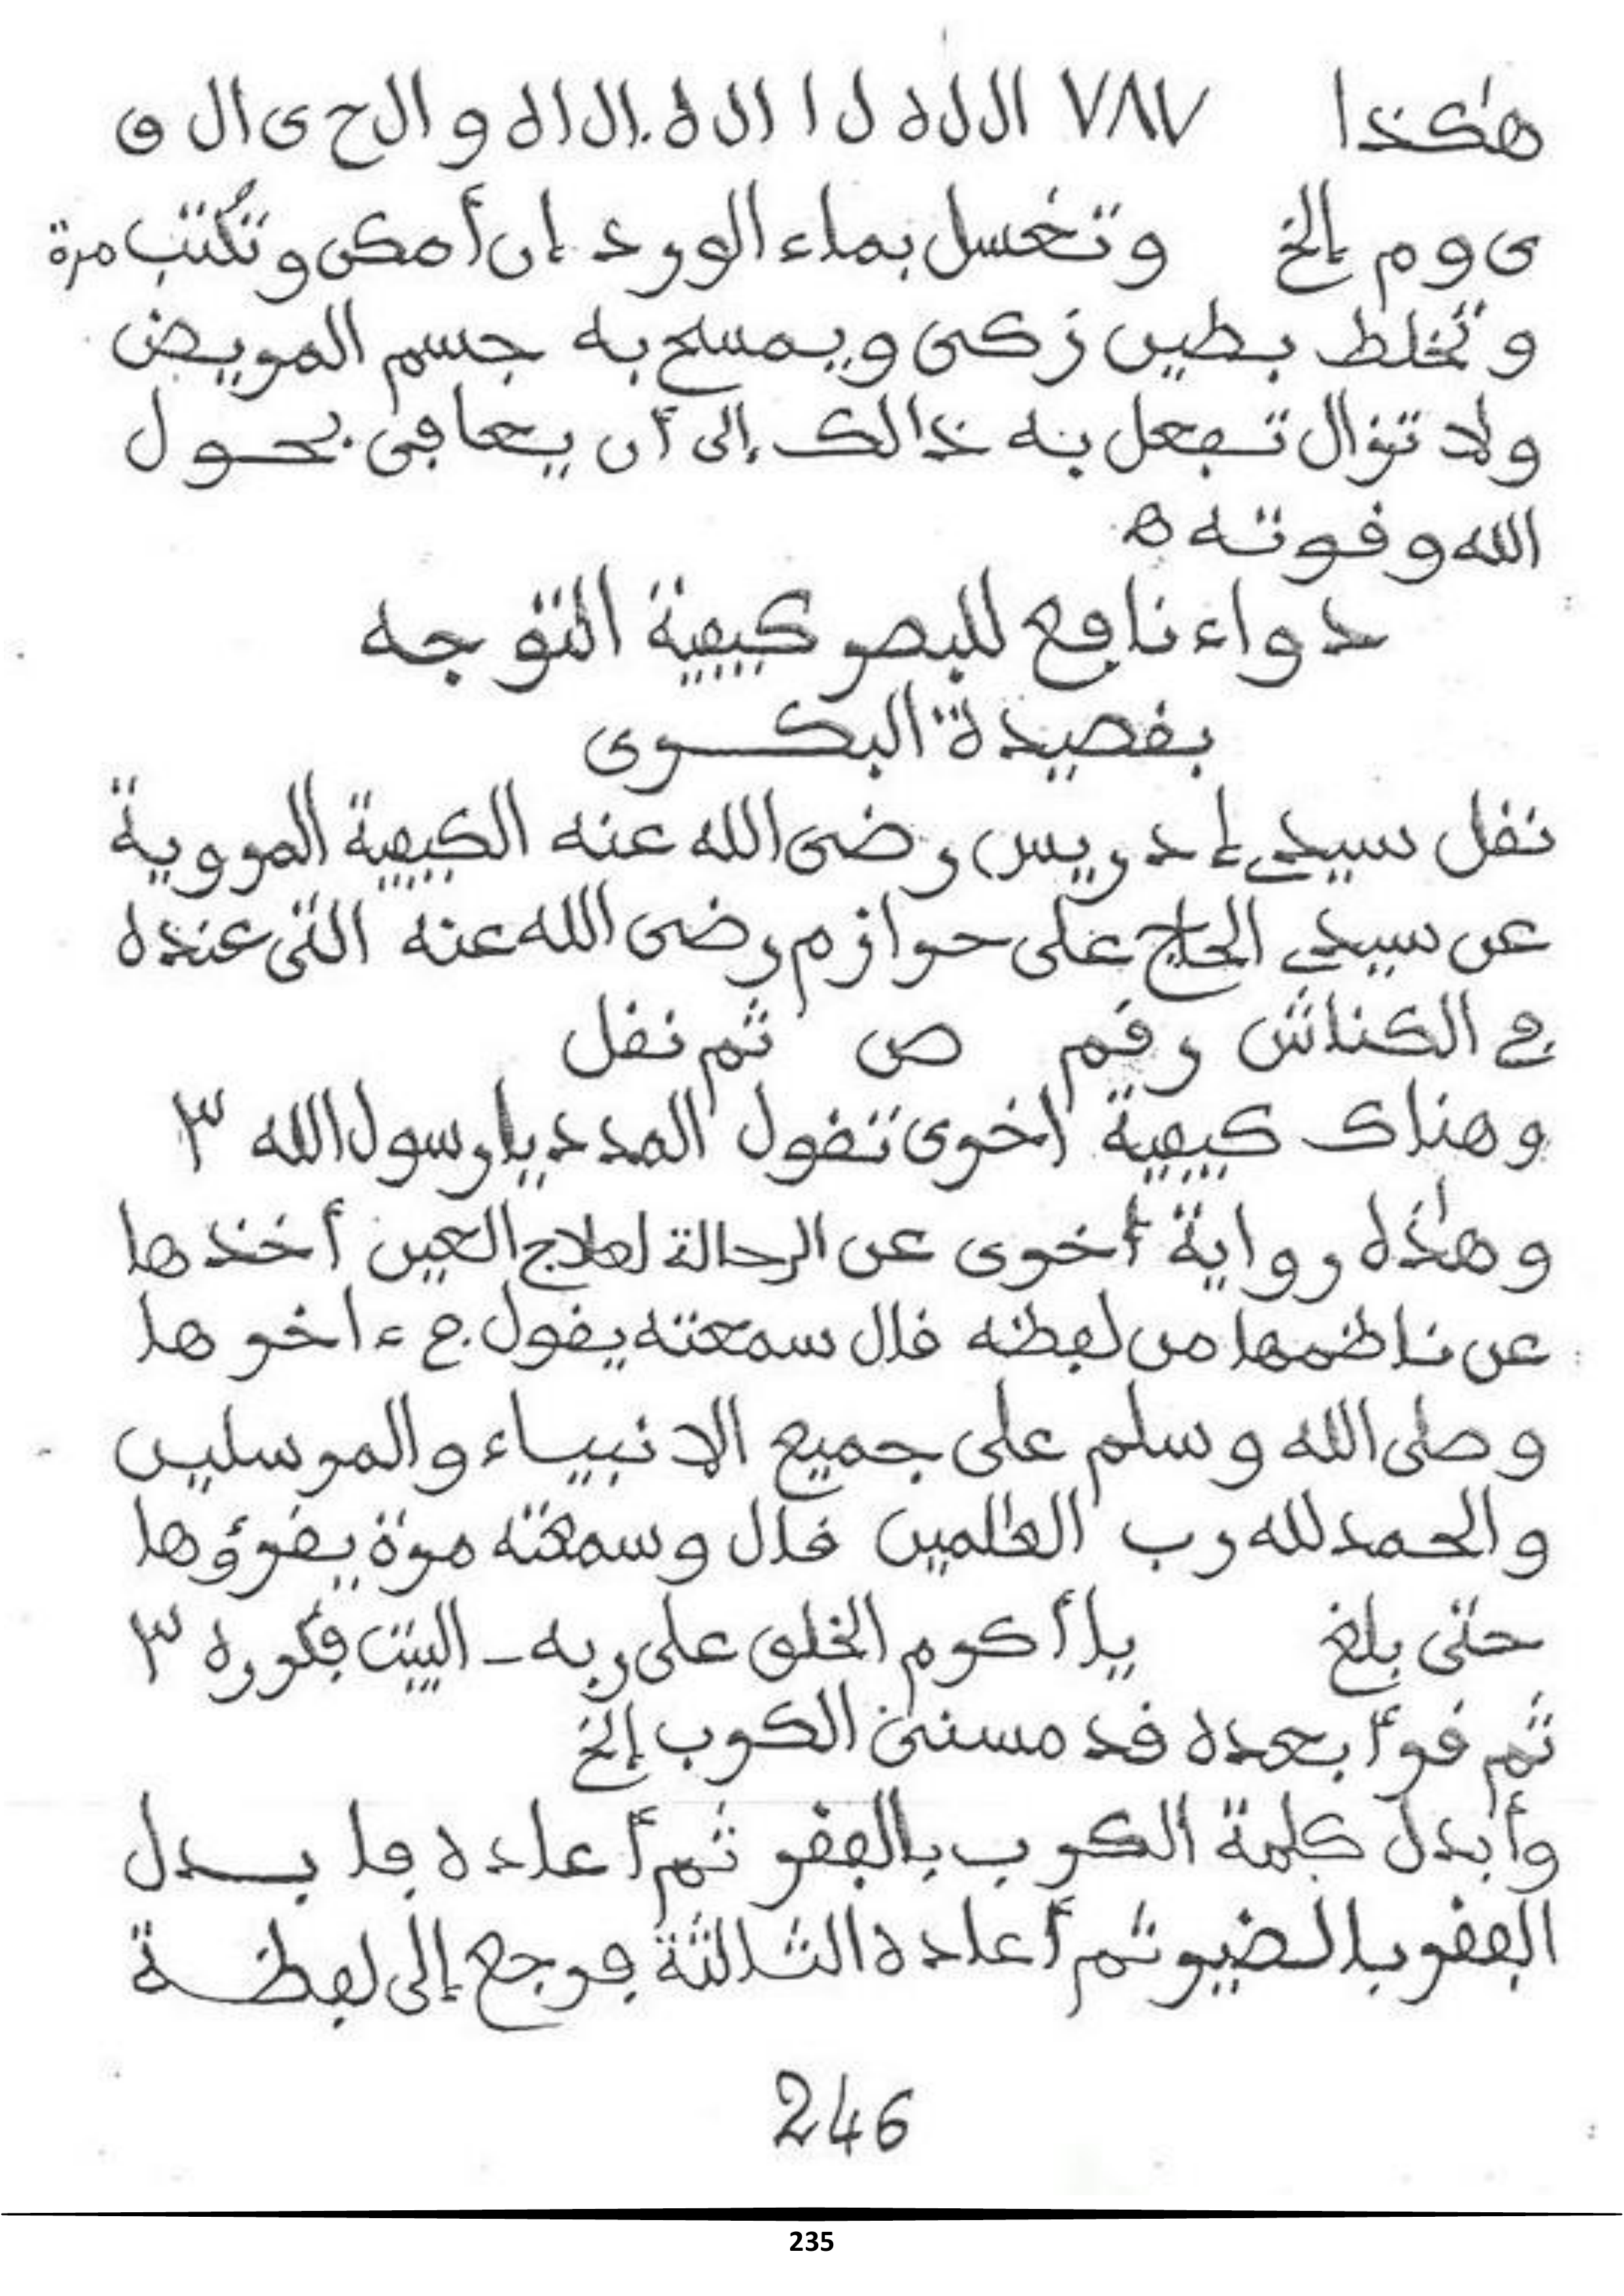 هٰكذا ٧٨٧ ا ل ل ه ل ا ا ل ه إ ل ا ه و ا ل ح ى ا ل ق
ى و م إلخ وتغسل بماء الورد إن أمكن وتُكتب مرة
وتخلط بطين زكى ويمسح به جسم المريض
ولا تزال تفعل به ذالك إلى أن يعافى بحول
الله وقوته ه
دواء نافع للبصر كيفية التوجه
بقصيدة البكرى
نقل سيدي إدريس رضى الله عنه الكيفية المروية
عن سيدي الحاج على حرازم رضى الله عنه التى عنده
في الكناش رقم ص ثم نقل
وهناك كيفية اخرى تقول المدد يا رسول الله ٣
وهٰذه رواية أخرى عن الرحالة لعلاج العين أخذها
عن ناظمها من لفظه قال سمعته يقول في ءاخرها
وصلى الله وسلم على جميع الانبياء والمرسلين
والحمد لله رب العٰلمين قال وسمعته مرة يقرؤها
حتى بلغ يا أكرم الخلق على ربه ـ البيت فكرره ٣
ثم قرأ بعده قد مسنى الكرب إلخ
وأبدل كلمة الكرب بالفقر ثم أعاده فابدل
الفقر بالضير ثم أعاده الثالثة فرجع إلى لفظة
246
235